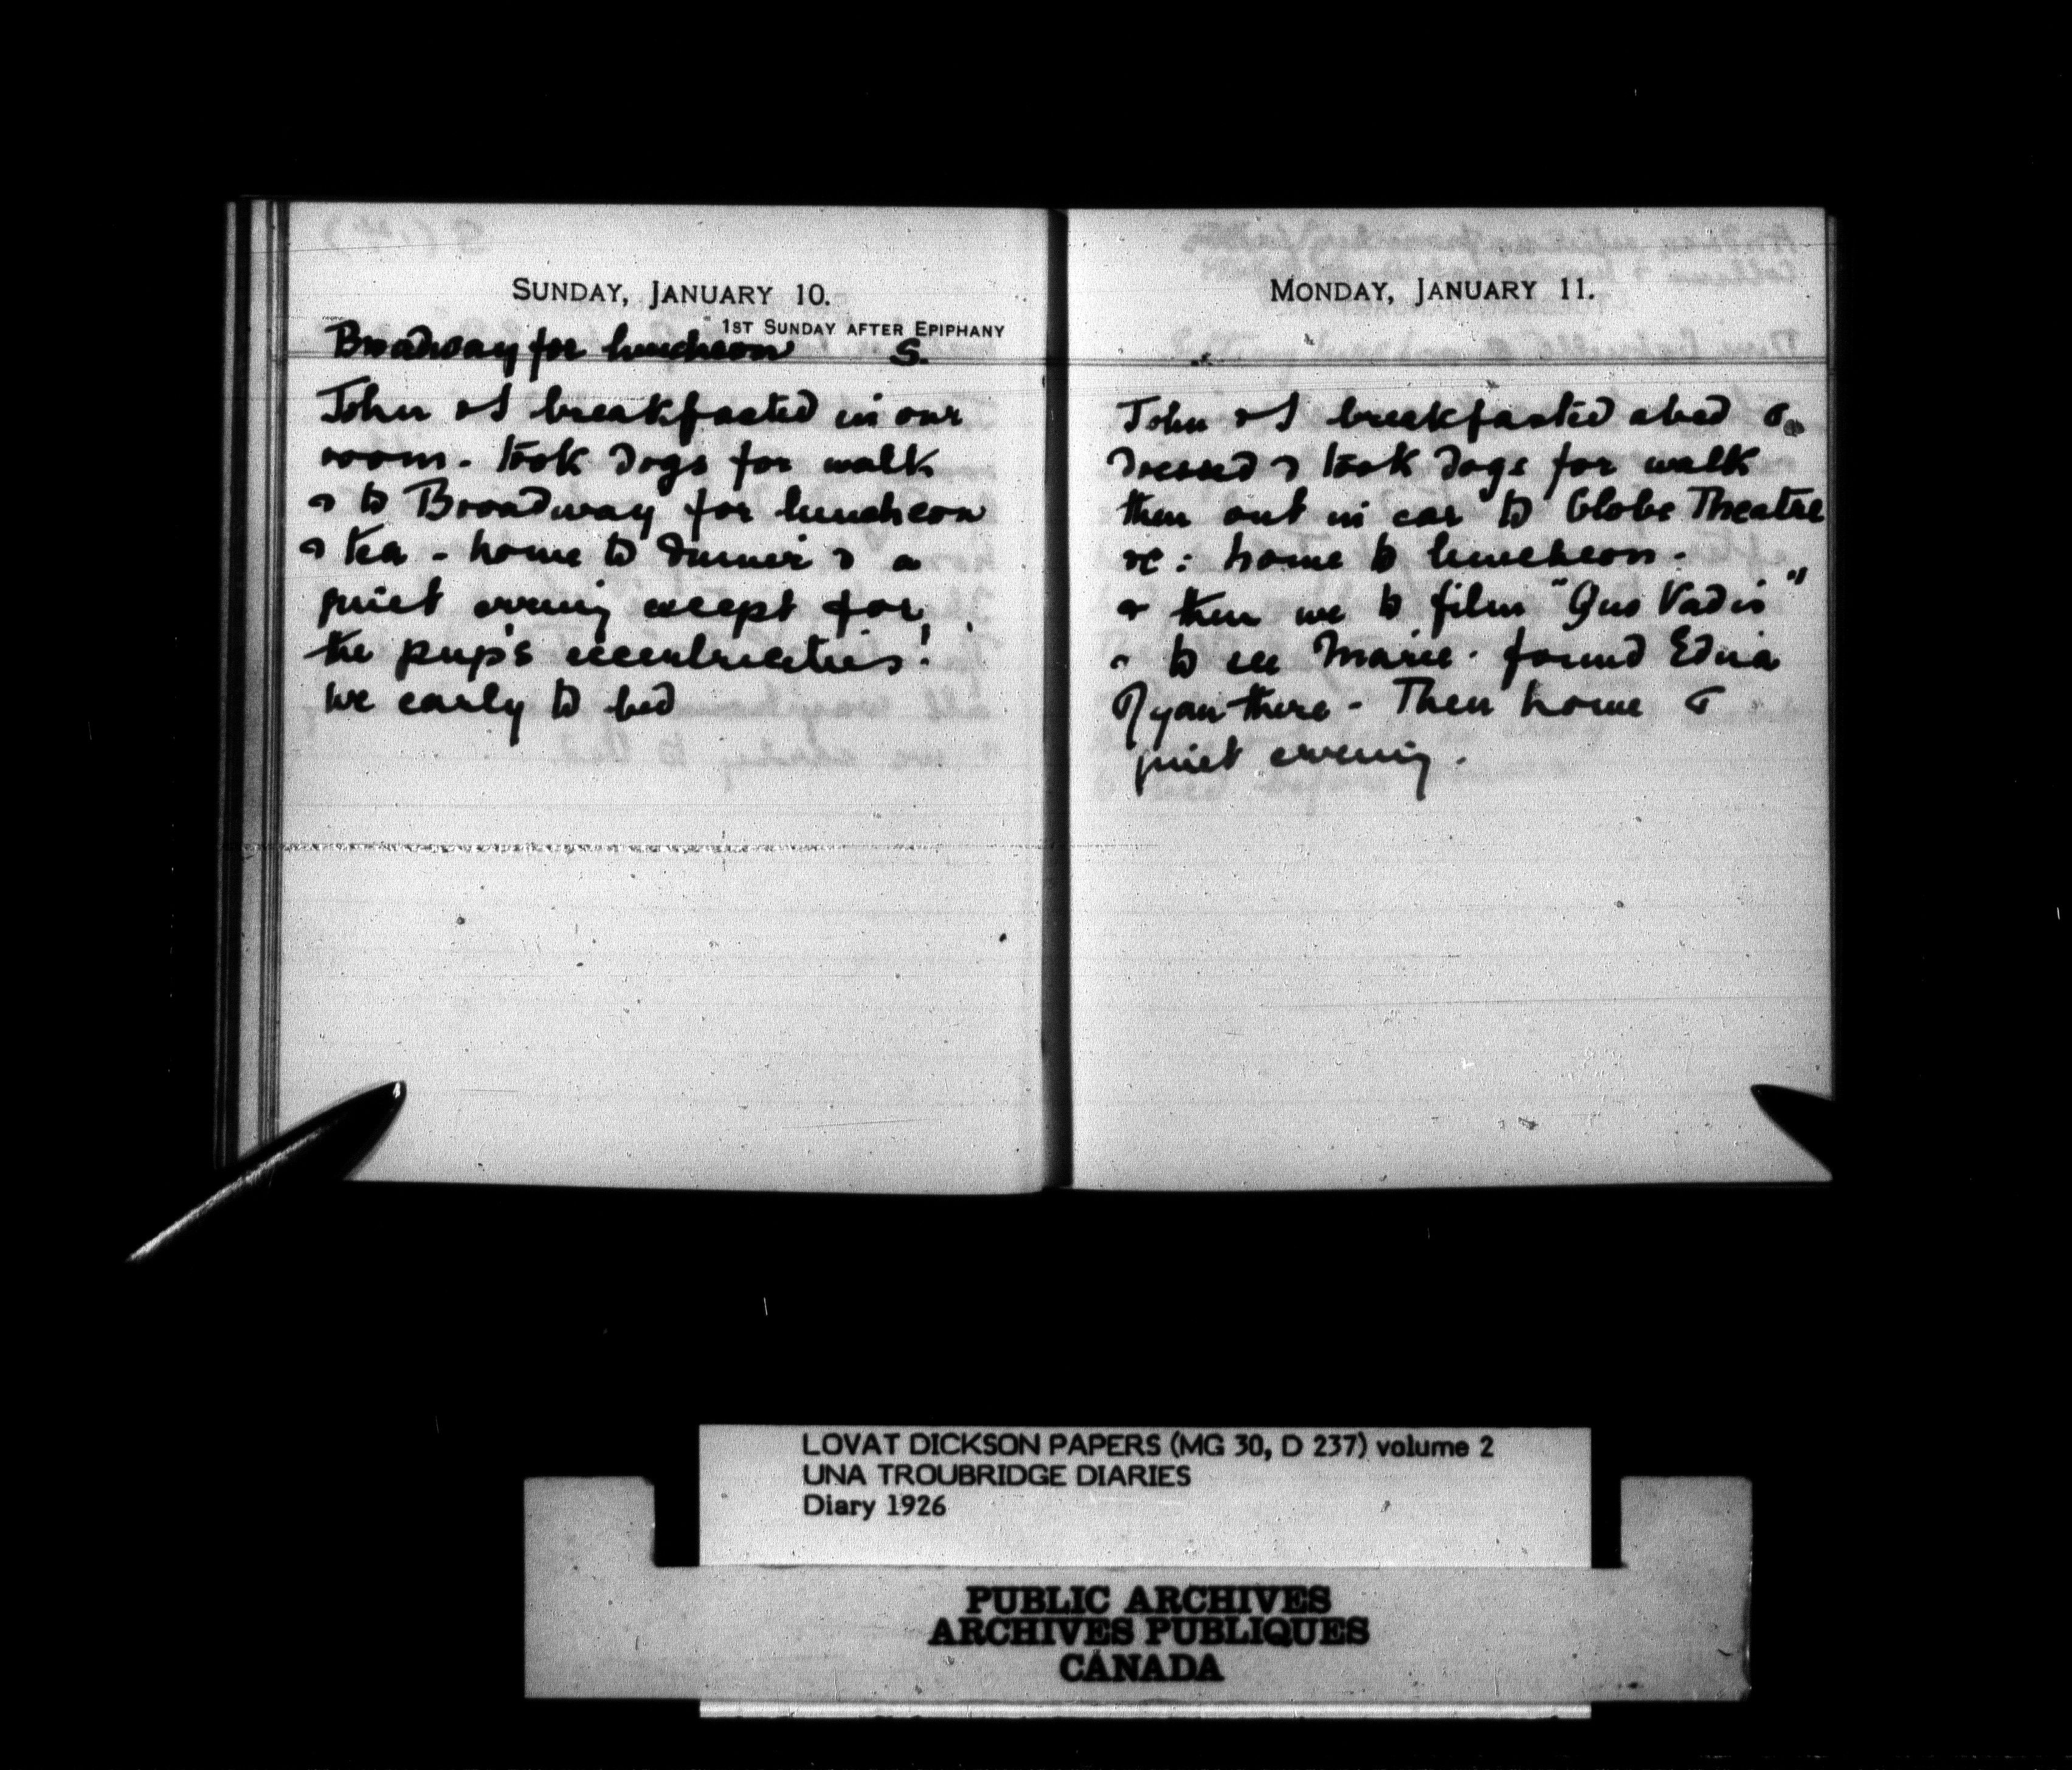 SUNDAY, JANUARY 10.
1ST SUNDAY AFTER EPIPHANY
Broadway for luncheon S.
John & I breakfasted in our
room. took dogs for walk
& to Broadway for luncheon
& tea - home to dinner & a
quiet evening except for
the pup's eccentricities!
We early to bed
MONDAY, JANUARY 11.
John & I breakfasted abed &
dressed & took dogs for walk
then out in car to Globe Theatre
&c: home to luncheon.
& then we to film "Quo Vadis"
& to see Marie. found Edna
Ryan there - Then home &
quiet evening.
LOVAT DICKSON PAPERS (MG 30, D 237) volume 2
UNA TROUBRIDGE DIARIES
Diary 1926
PUBLIC ARCHIVES
ARCHIVES PUBLIQUES
CANADA